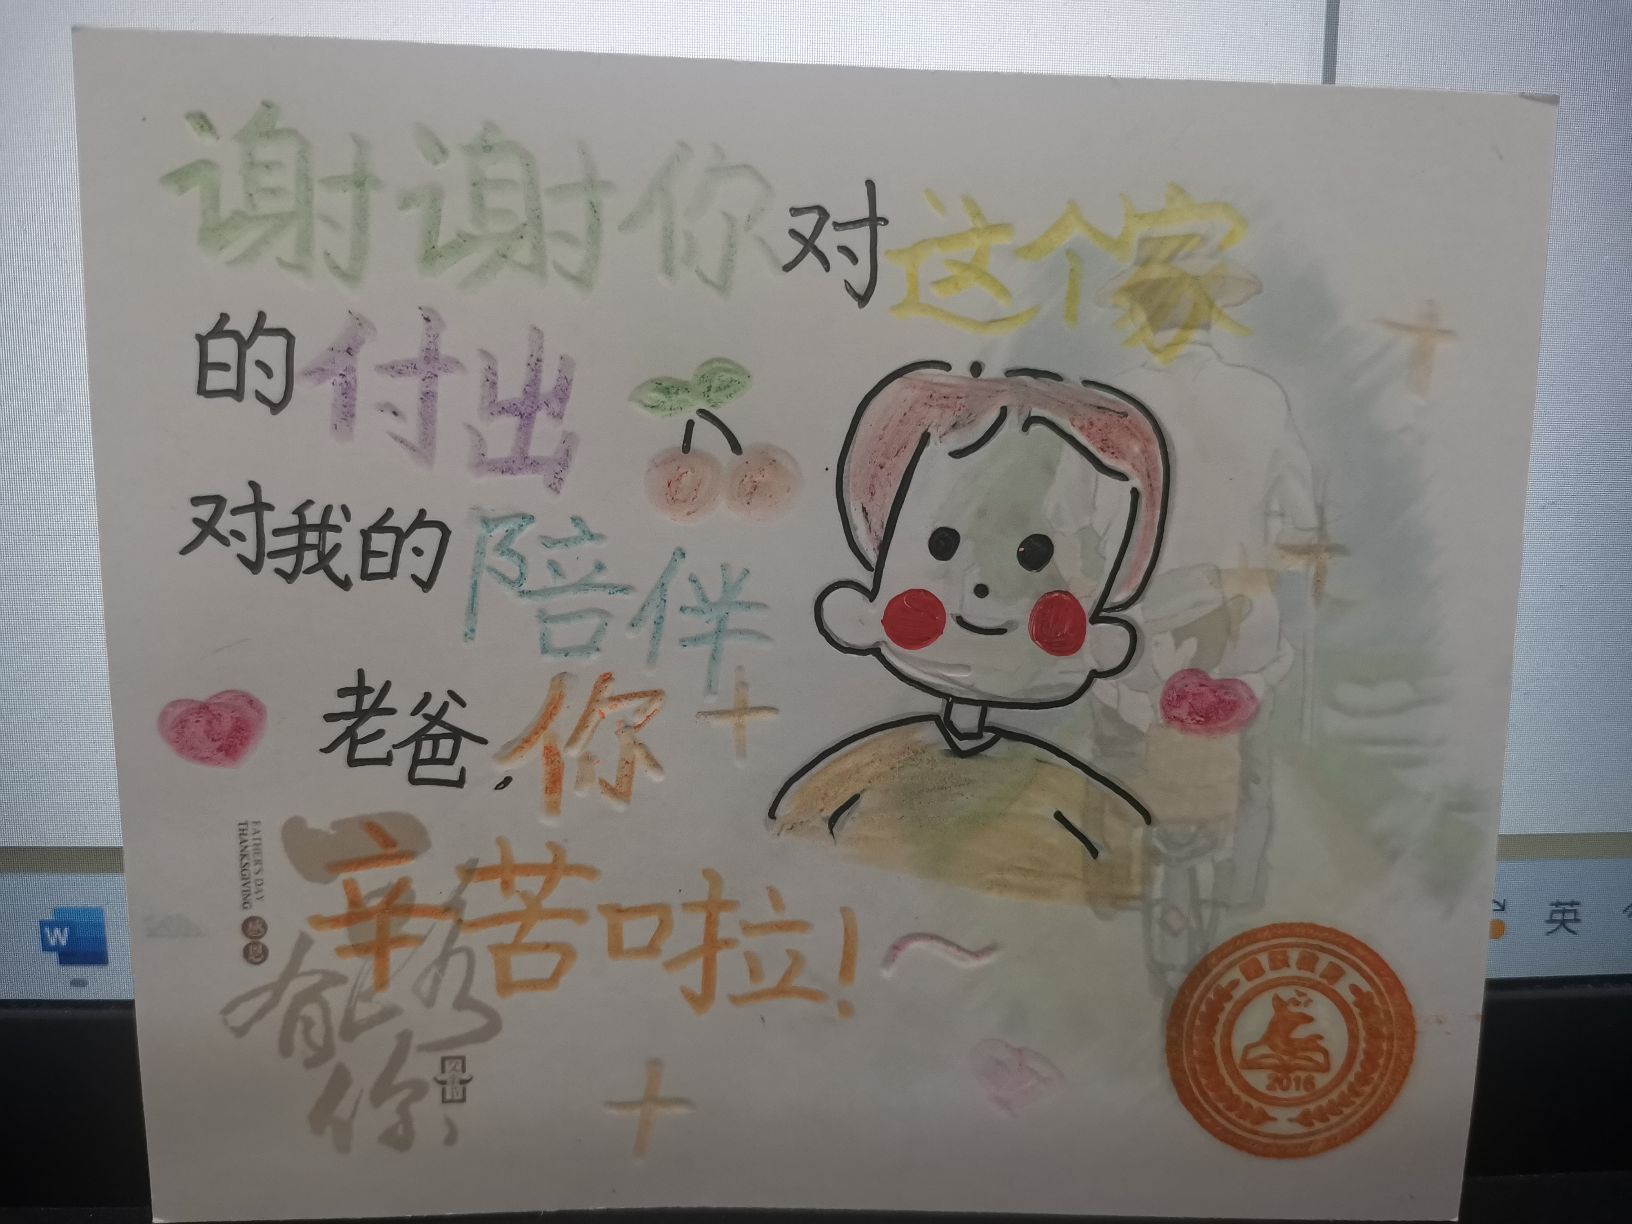 谢谢你对这个家
的付出
对我的陪伴
老爸,你
辛苦啦!
FATHER'S DAY
THANKSGIVING
有你
2016
英
W